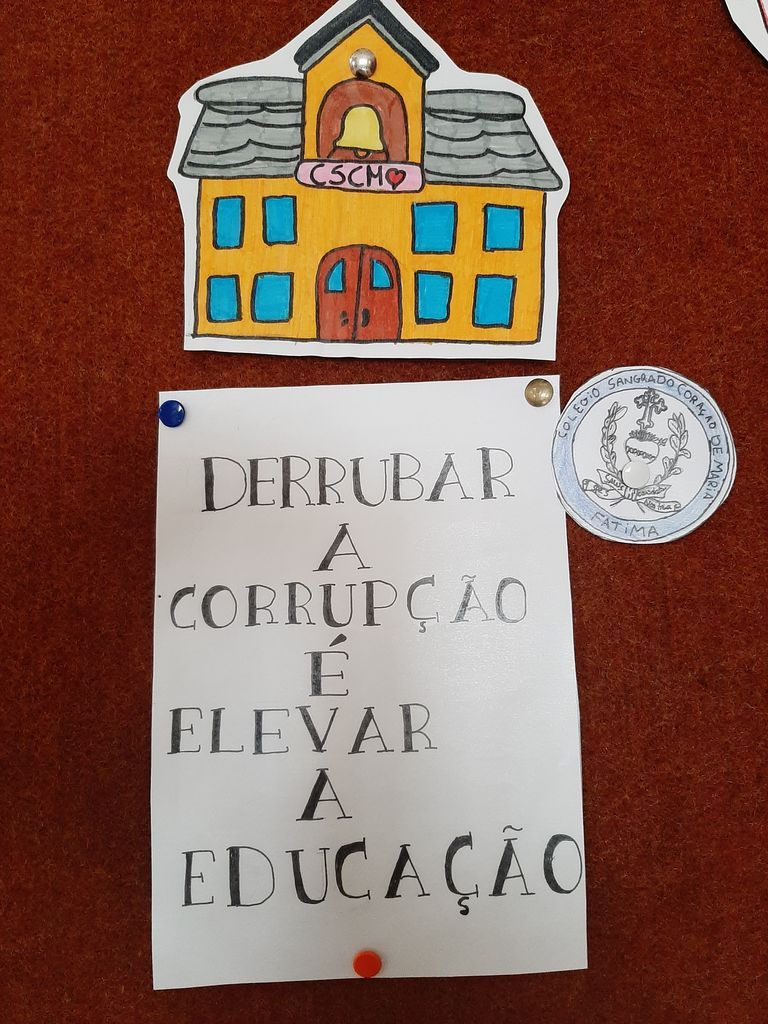 CSCM
COLEGIO SANGRADO CORAÇÃO DE MARIA
FÁTIMA
DERRUBAR
A
CORRUPÇÃO
É
ELEVAR
A
EDUCAÇÃO